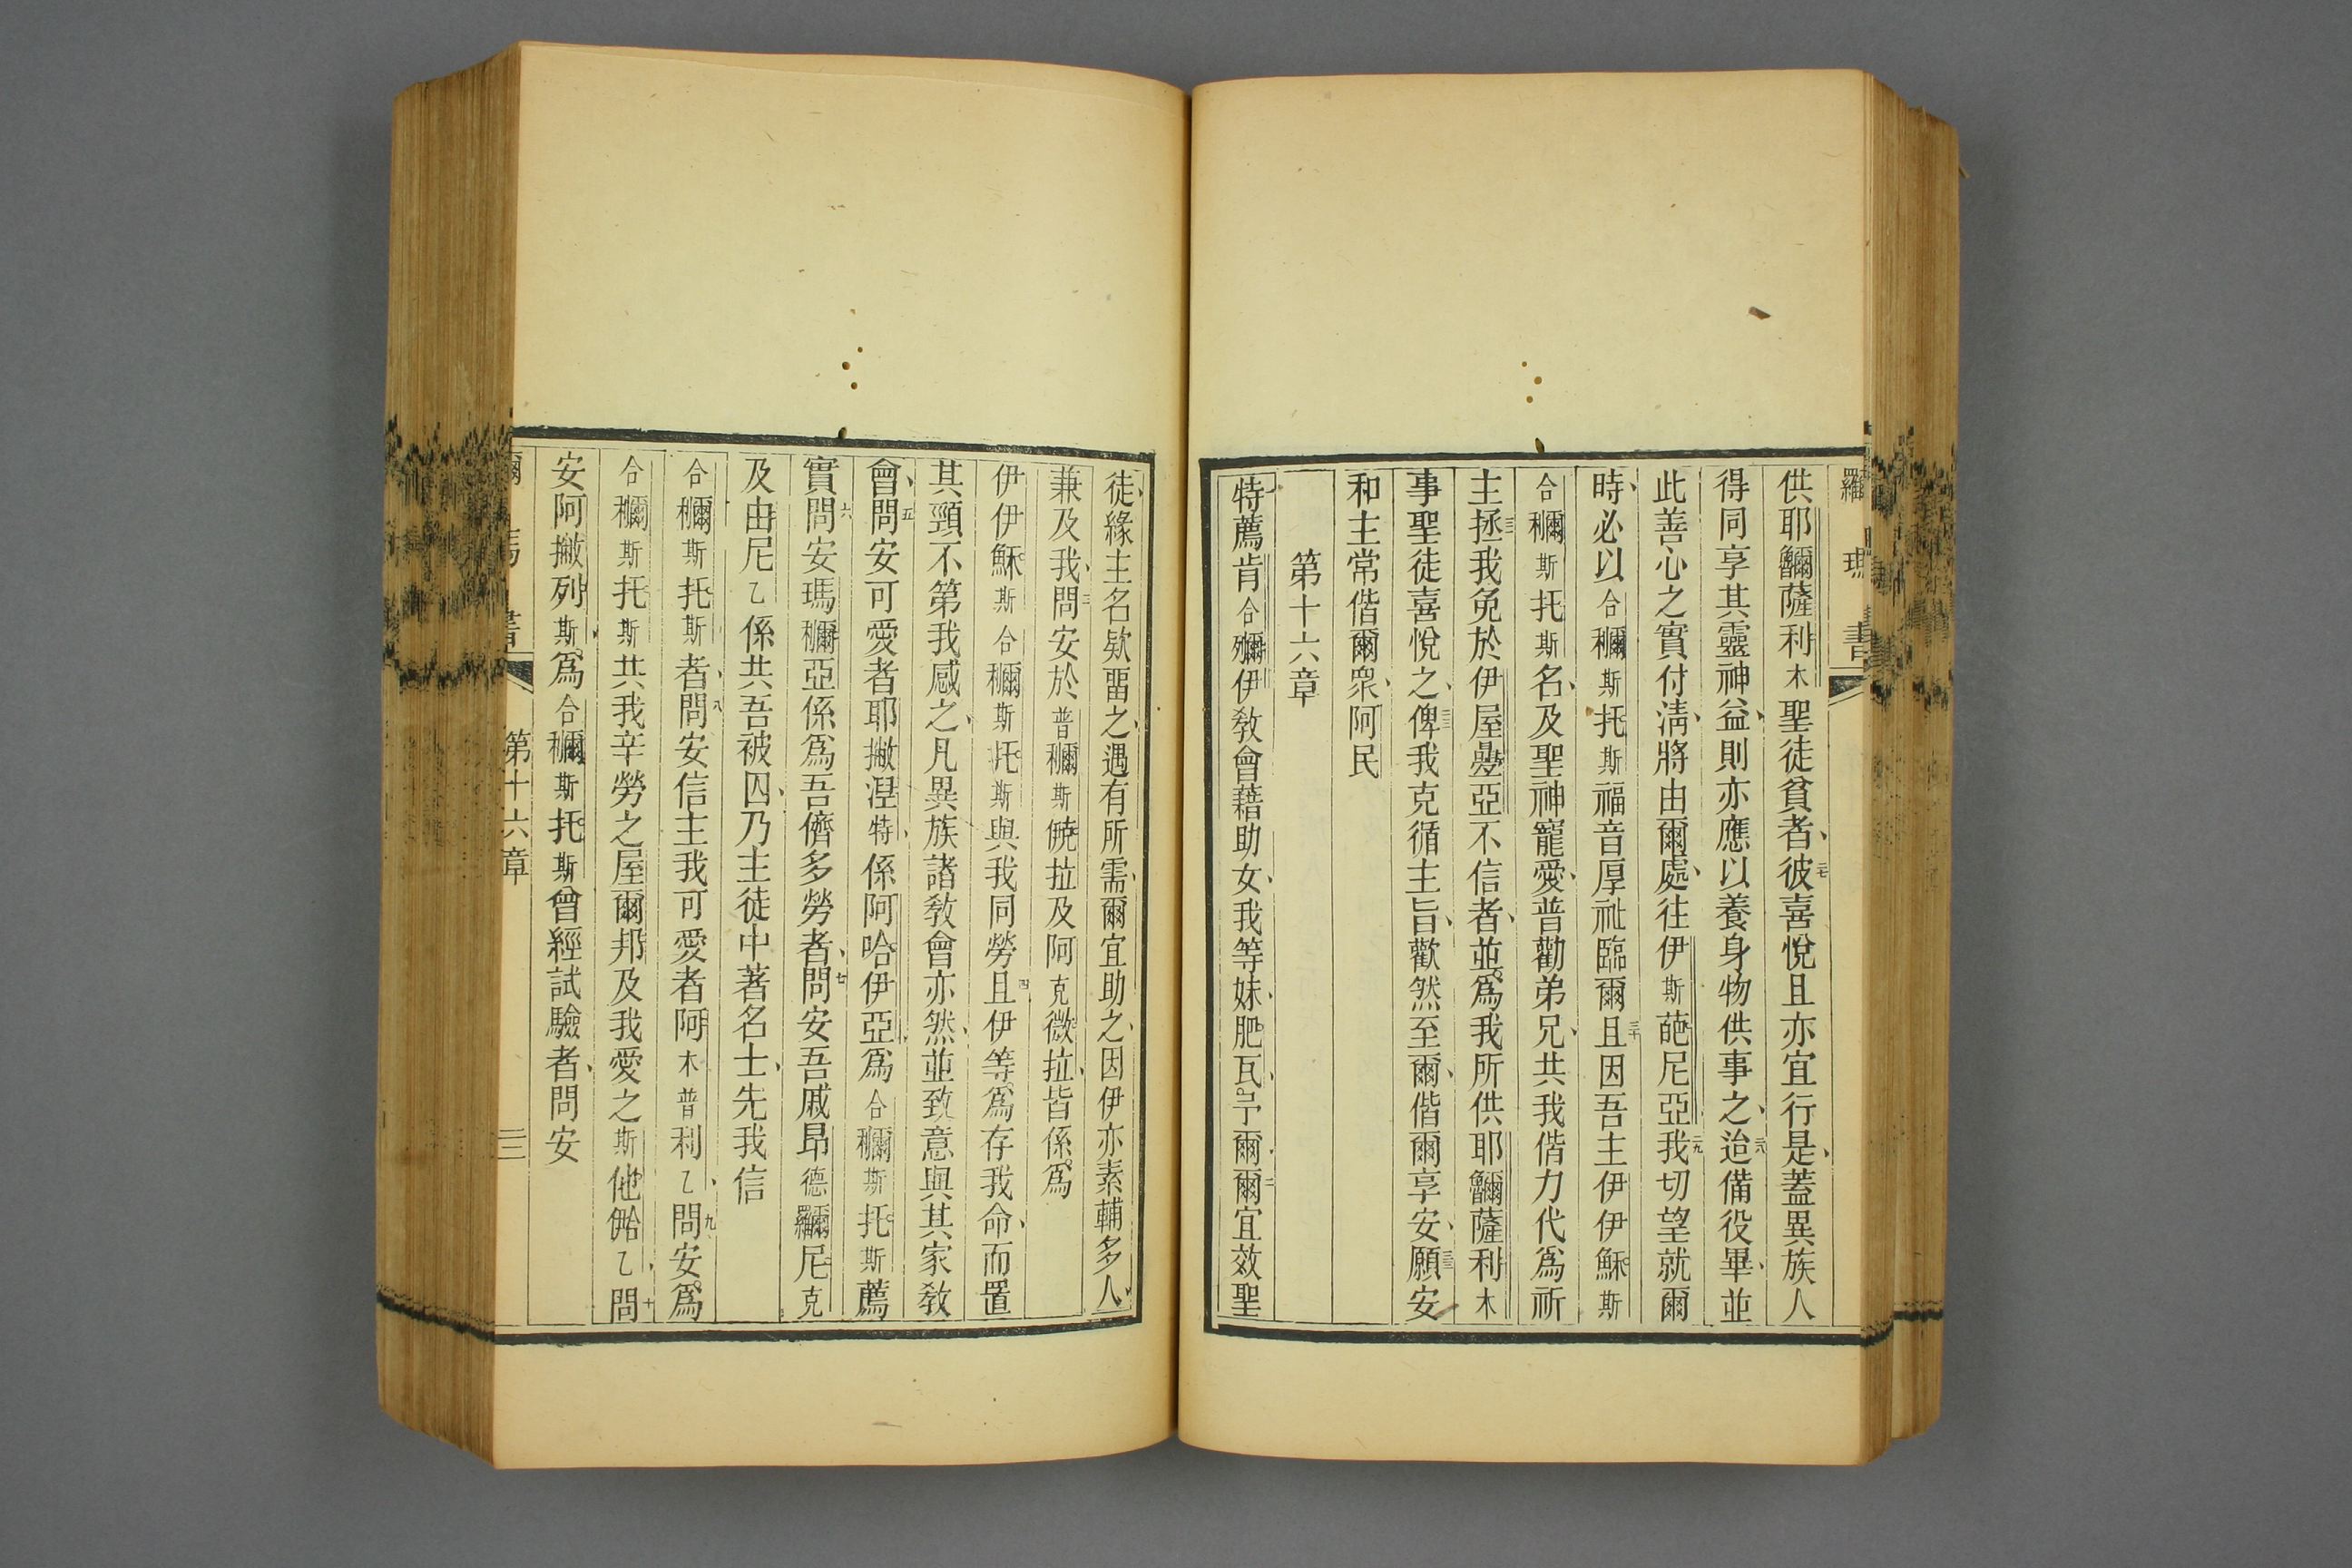 羅 瑪 書
供耶䲁薩利木聖徒貧者、彼喜悅且亦宜行是、蓋異族人
二七
得同享其靈神益、則亦應以養身物供事之、迨備役畢、並
二八
此善心之實付淸、將由爾處、往伊斯葩尼亞我切望就爾
二九
時、必以合稱斯托斯福音厚祉臨爾且因吾主伊伊穌斯
三十
合斯托斯名、及聖神寵愛、普勸弟兄、共我偕力代爲祈
主拯我免於伊屋疊亞不信者、並爲我所供耶薩利木
三一
事聖徒喜悅之、俾我克循主旨、歡然至爾、偕爾享安、願安
三二
三三
和主常偕爾眾、阿民
第十六章
特薦肯合伊敎會藉助女、我等妹、肥瓦、于爾、爾宜效聖
二
徒、緣主名欵畱之、遇有所需、爾宜助之、因伊亦素輔多人、
兼及我、問安於普斯拉及阿克微拉、皆係爲
三
伊伊穌斯合斯托斯與我同勞且伊等爲存我命、而置
四
其頸不第我感之、凡異族諸敎會亦然、並致意與其家敎
會、問安可愛者耶撇湼特、係阿哈伊亞、爲合斯托斯薦
五
實問安瑪亞係爲吾儕多勞者、問安吾戚昂德尼克
六
七
及由尼乙係共吾被囚、乃主徒中著名士、先我信
合斯托斯者、問安信主我可愛者阿木普利乙、問安爲
八
九
合斯托斯共我辛勞之屋爾邦及我愛之斯他乙、問
十
安阿撇列斯、爲合斯托斯曾經試驗者、問安
書
第十六章
三